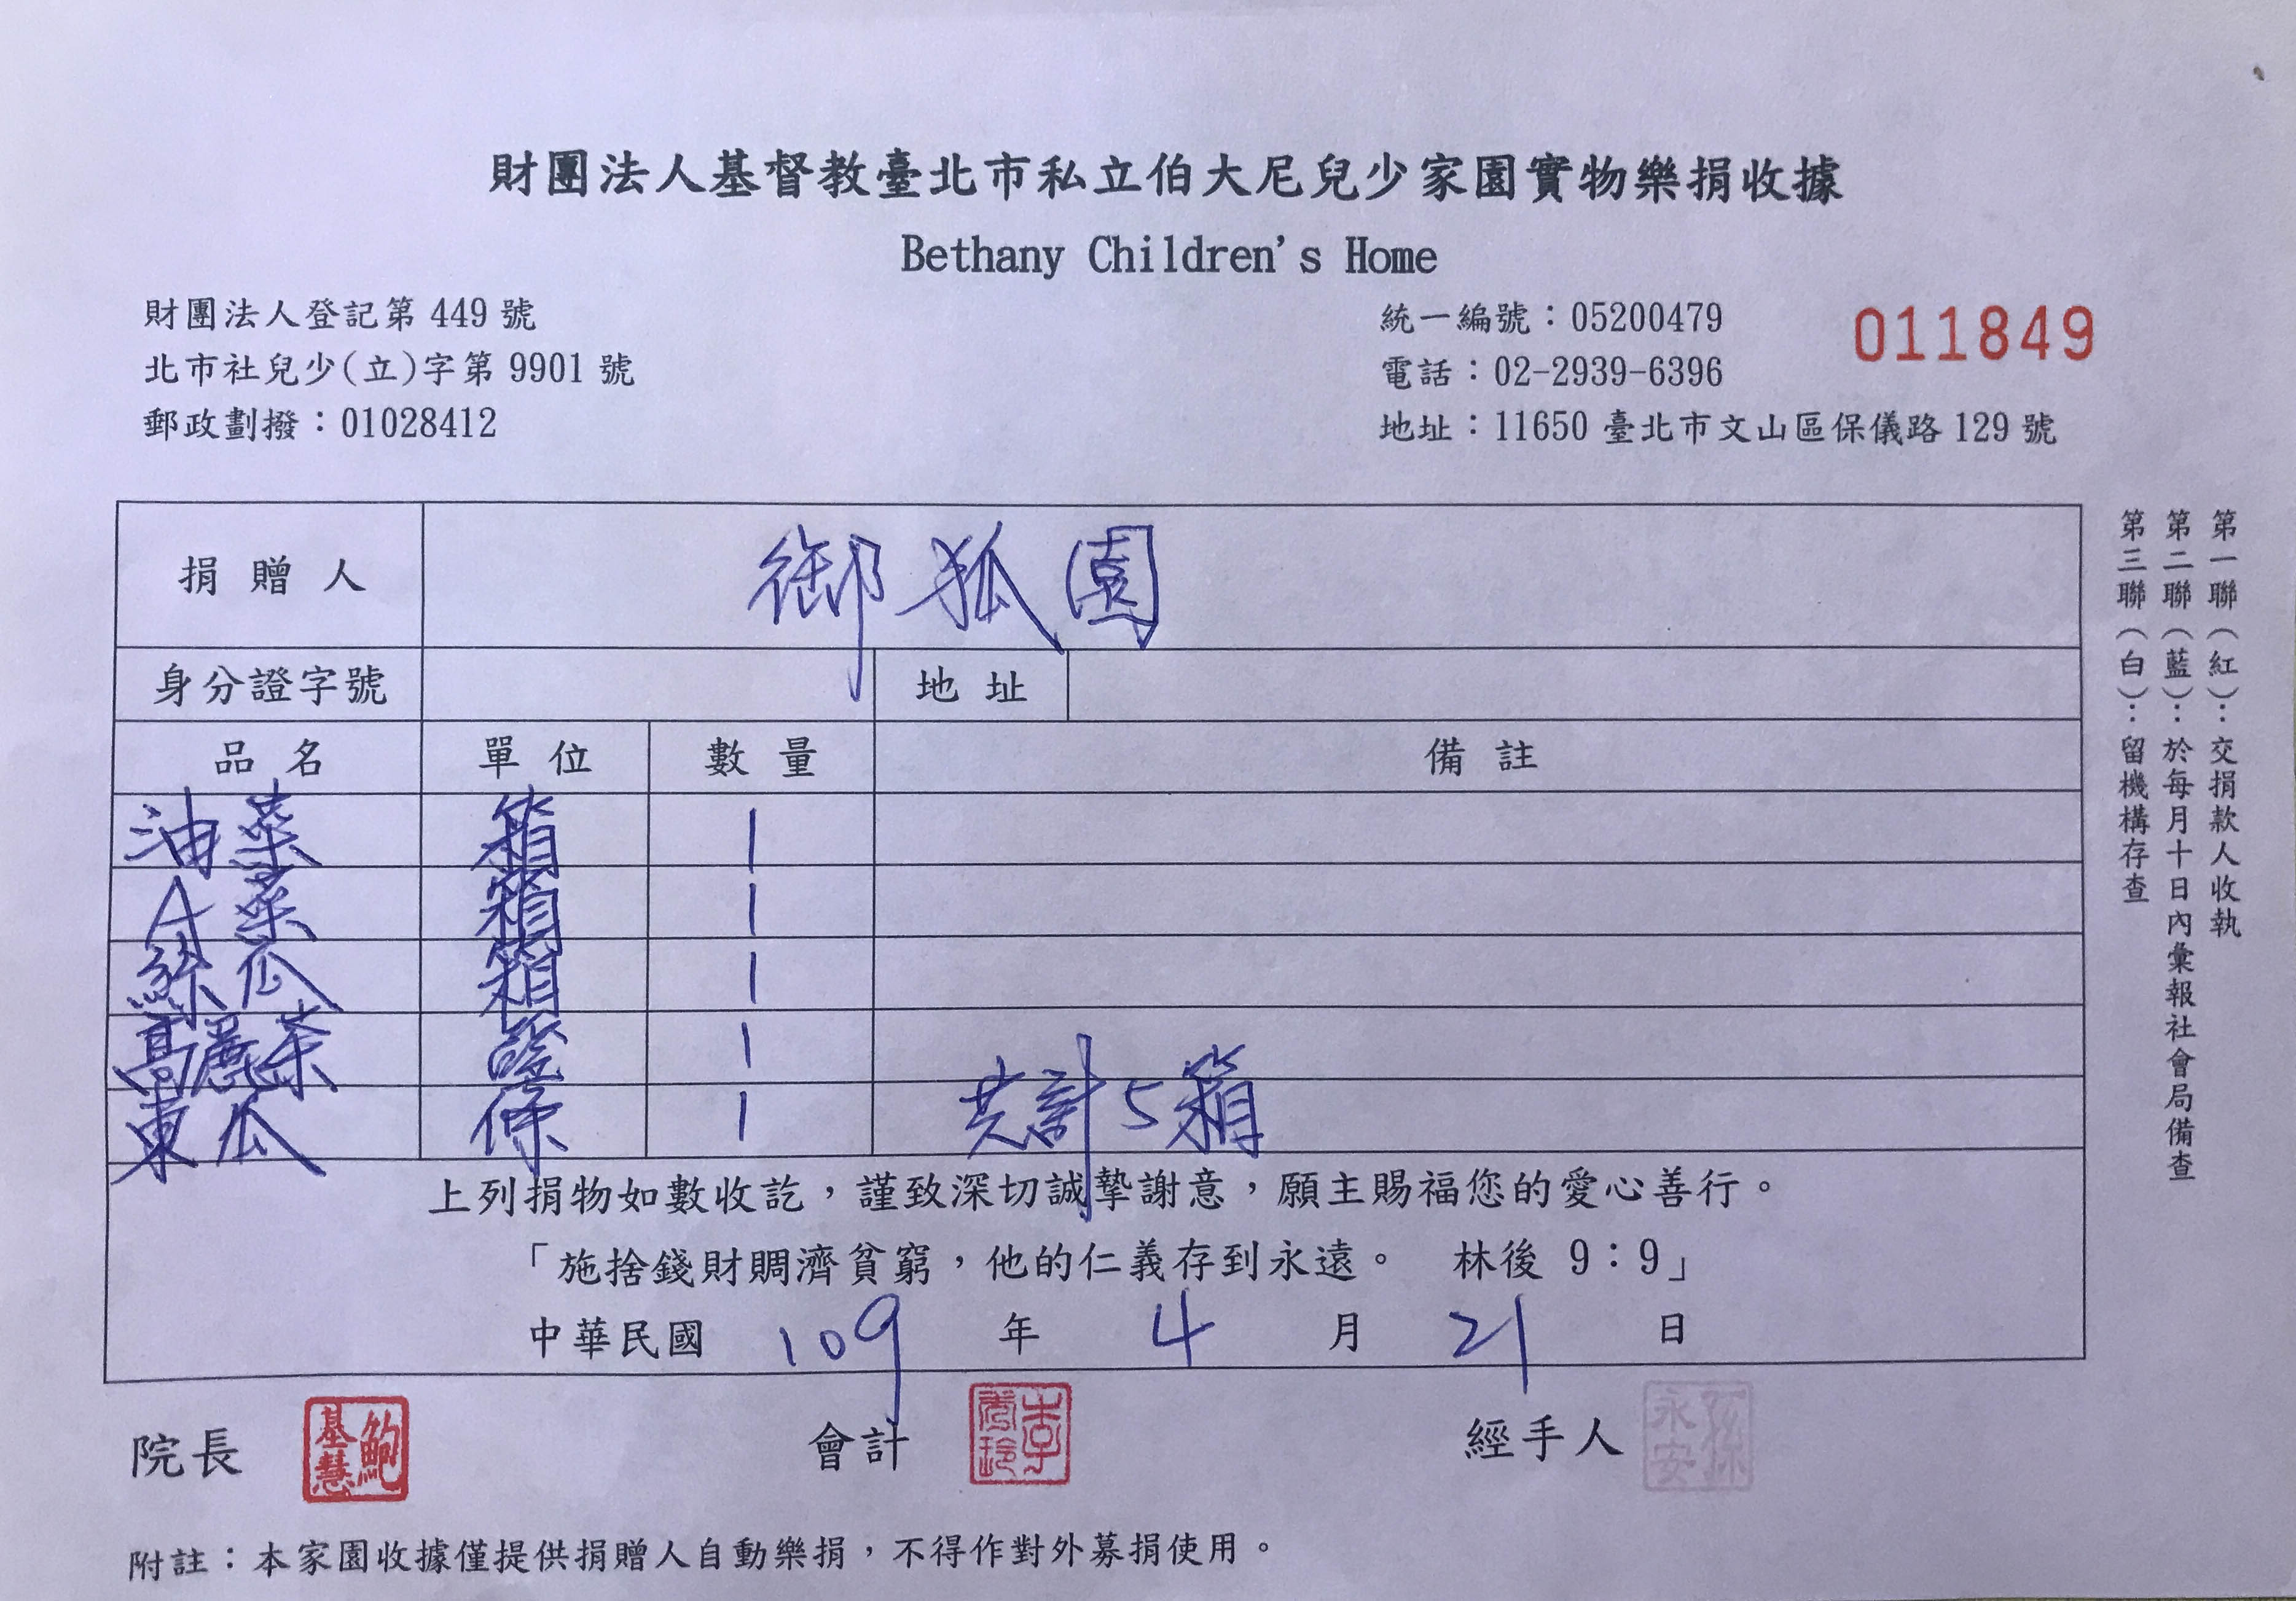 財團法人基督教臺北市私立伯大尼兒少家園實物樂捐收據
Bethany Children's Home
財團法人登記第 449 號
北市社兒少(立)字第 9901 號
郵政劃撥：01028412
統一編號：05200479
電話：02-2939-6396
地址：11650 臺北市文山區保儀路 129 號
011849
捐贈人 御狐園
身分證字號 地址
品名 單位 數量 備註
油菜 箱 1
A菜 箱 1
絲瓜 箱 1
高麗菜 1
東瓜 條 1 共計5箱
上列捐物如數收訖，謹致深切誠摯謝意，願主賜福您的愛心善行。
「施捨錢財賙濟貧窮，他的仁義存到永遠。 林後 9：9」
中華民國 109 年 4 月 21 日
院長 鮑基慧 會計 李秀玲 經手人 孫永安
附註：本家園收據僅提供捐贈人自動樂捐，不得作對外募捐使用。
第一聯(紅)：交捐款人收執
第二聯(藍)：於每月十日內彙報社會局備查
第三聯(白)：留機構存查